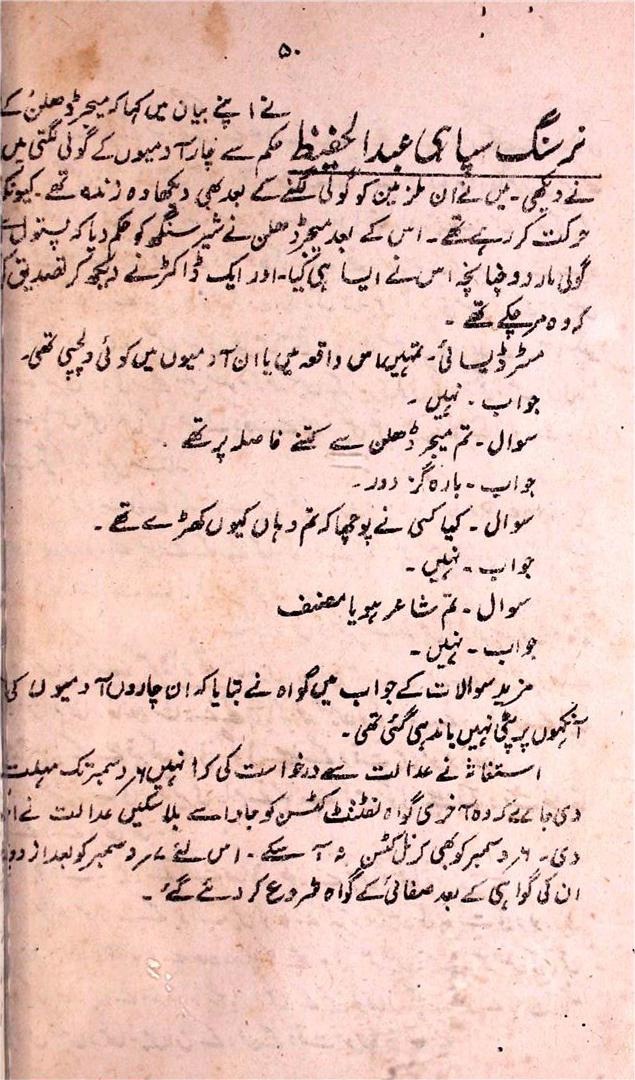 ۵۰
نے اپنے بیان میں کہا کہ میجر ڈھلن کے
نرسنگ سپاہی عبدالحفیظ حکم سے چار آدمیوں کے گولی لگتی میں
نے دیکھی۔ میں نے ان ملزمین کو گولی لگنے کے بعد بھی دیکھا وہ زندہ تھے۔ کیونکہ
حرکت کر رہے تھے۔ اس کے بعد میجر ڈھلن نے شیر سنگھ کو حکم دیا کہ پستول سے
گولی مار دو چنانچہ اس نے ایسا ہی کیا۔ اور ایک ڈاکٹر نے دیکھ کر تصدیق
کہ وہ مر چکے تھے۔
مسٹر ڈیسائی۔ تمہیں اس واقعہ میں یا ان آدمیوں میں کوئی دلچسپی تھی۔
جواب۔ نہیں۔
سوال۔ تم میجر ڈھلن سے کتنے فاصلہ پر تھے۔
جواب۔ بارہ گز دور۔
سوال۔ کیا کسی نے پوچھا کہ تم وہاں کیوں کھڑے تھے۔
جواب۔ نہیں۔
سوال۔ تم شاعر ہو یا مصنف
جواب۔ نہیں۔
مزید سوالات کے جواب میں گواہ نے بتایا کہ ان چاروں آدمیوں کی
آنکھوں پر پٹی نہیں باندھی گئی تھی۔
استغاثہ نے عدالت سے درخواست کی کہ انہیں ۶ر دسمبر تک مہلت
دی جائے کہ وہ آخری گواہ لفٹننٹ کٹسن کو جاوا سے بلا سکیں عدالت نے
دی۔ ۶ر دسمبر کو بھی کرنل کٹسن نہ آ سکے۔ اس لئے ۷ر دسمبر کو بعد از
ان کی گواہی کے بعد صفائی کے گواہ شروع کر دئے گئے۔